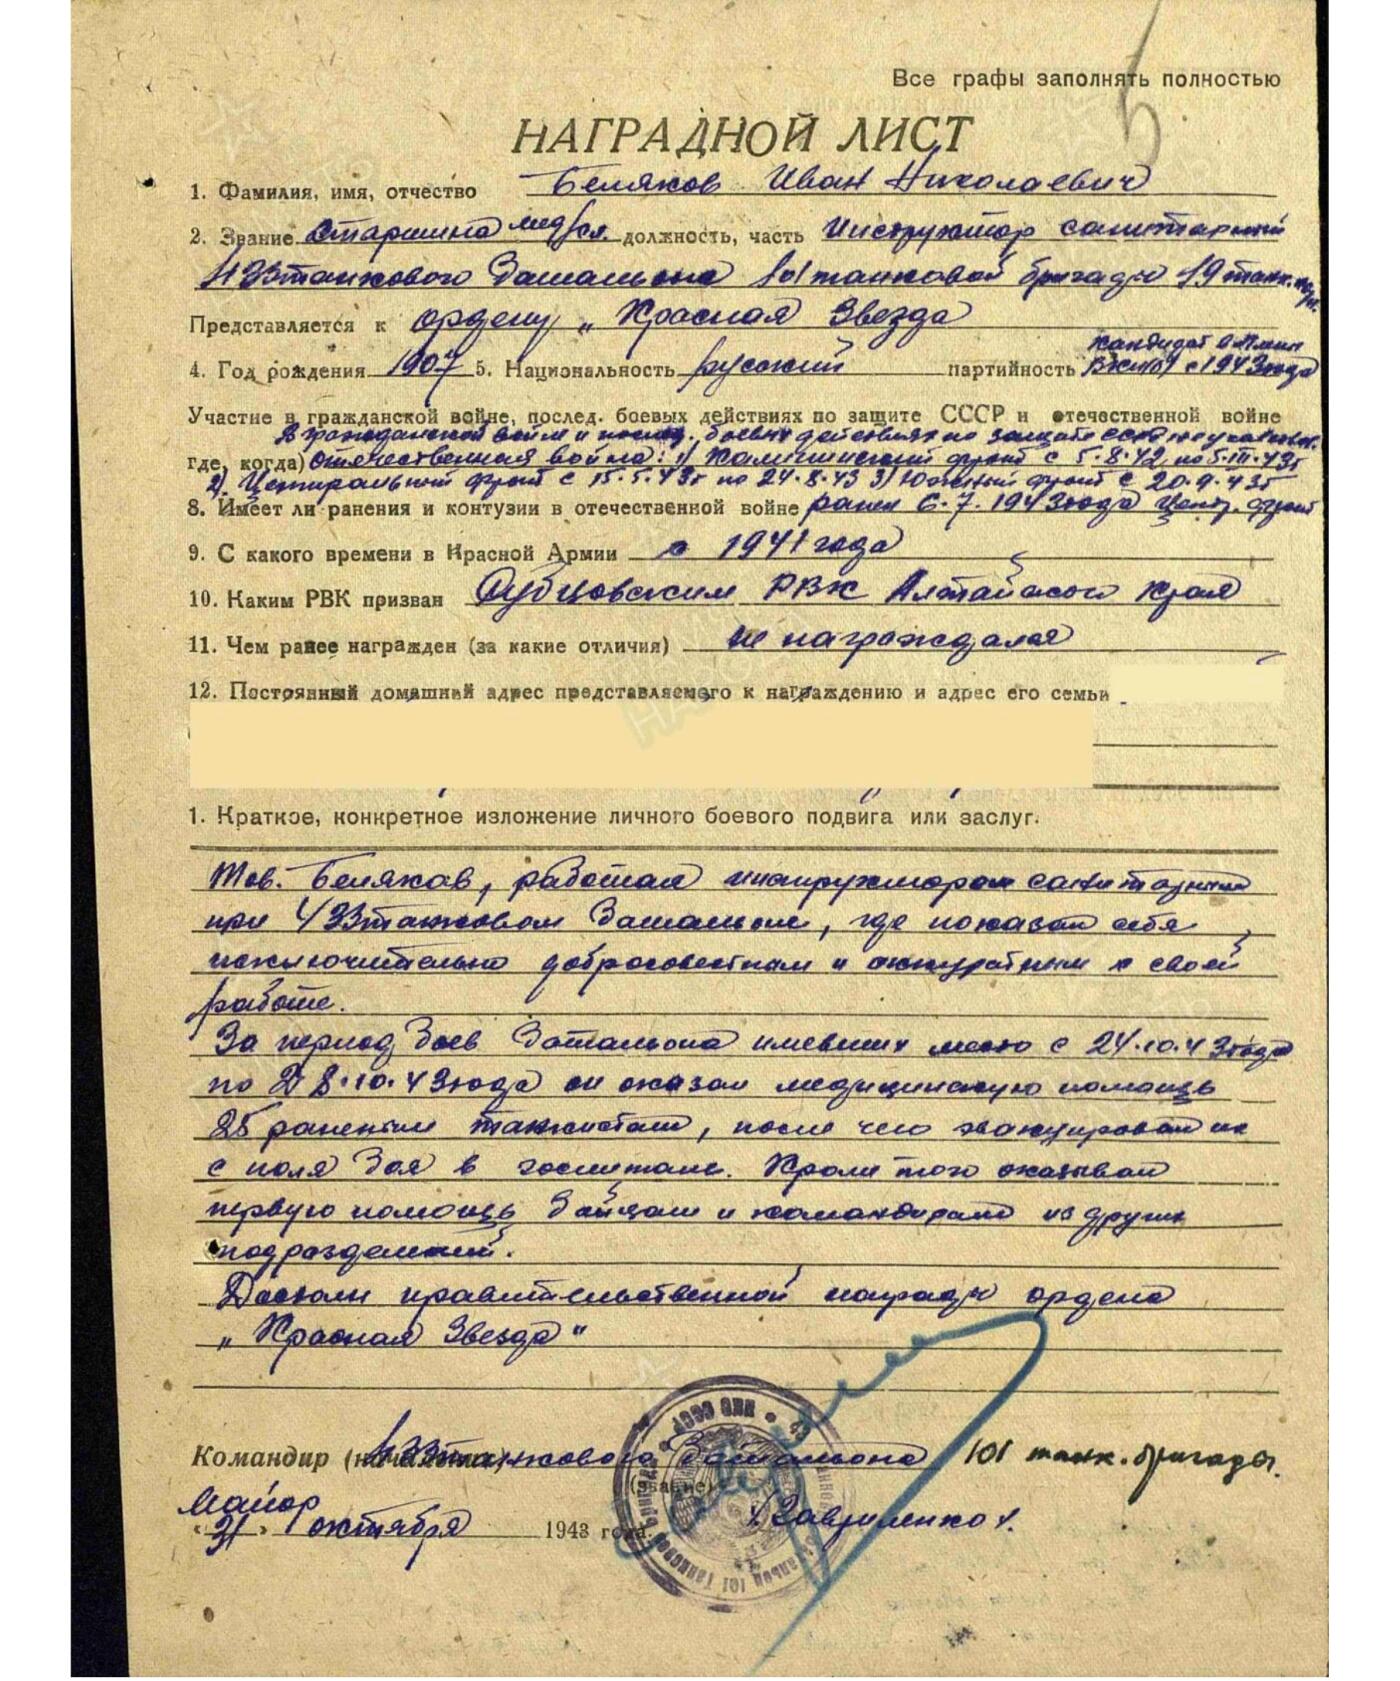 Все графы заполнять полностью
5
НАГРАДНОЙ ЛИСТ
1. Фамилия, имя, отчество Беляков Иван Николаевич
2. Звание Старшина мед/сл. должность, часть Инструктор санитарный
43 танкового батальона 101 танковой бригады 19 танк.
Представляется к ордену „Красная Звезда
кандидат в члены
4. Год рождения 1907 5. Национальность русский партийность ВКП(б) с 1943 года
Участие в гражданской войне, послед. боевых действиях по защите СССР и отечественной войне
В гражданской войне и послед. боевых действиях по защите СССР не участвовал.
где, когда) отечественная война: 1) Калининский фронт с 5.8.42 по 5.III.43г
2) Центральный фронт с 15.5.43г по 24.8.43 3) Южный фронт с 20.9.43г
8. Имеет ли ранения и контузии в отечественной войне ранен 6.7.1943года Центр. фронт
9. С какого времени в Красной Армии с 1941 года
10. Каким РВК призван Рубцовским РВК Алтайского края
11. Чем ранее награжден (за какие отличия) не награждался
12. Постоянный домашний адрес представляемого к награждению и адрес его семьи
1. Краткое, конкретное изложение личного боевого подвига или заслуг.
Тов. Беляков, работая инструктором санитарным
при 43 танковом батальоне, где показал себя
исключительно добросовестным и аккуратным к своей
работе.
За период боев батальона имевших место с 24.10.43года
по 28.10.43года он оказал медицинскую помощь
25 раненым танкистам, после чего эвакуировал их
с поля боя в госпиталь. Кроме того оказывал
первую помощь бойцам и командирам из других
подразделений.
Достоин правительственной награды ордена
„Красная Звезда"
Командир (начальник) 43 танкового батальона 101 танк. бригады
(звание)
Майор /Гавриленко/.
„31" октября 1943 года.
НКО СССР